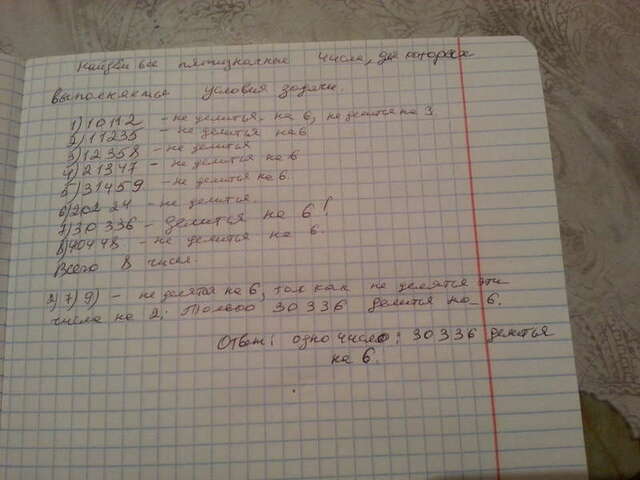 Найдём все пятизначные числа, для которых
выполняется условия задачи.
1) 10112 - не делится на 6, не делится на 3.
2) 11235 - не делится на 6
3) 12358 - не делится
4) 21347 - не делится на 6
5) 31459 - не делится на 6.
6) 20224 - не делится.
7) 30336 - делится на 6!
8) 40448 - не делится на 6.
Всего 8 чисел.
2) 7) 9) - не делятся на 6, так как не делятся эти
числа на 2; Только 30336 делится на 6.
Ответ: одно число: 30336 делится
на 6.